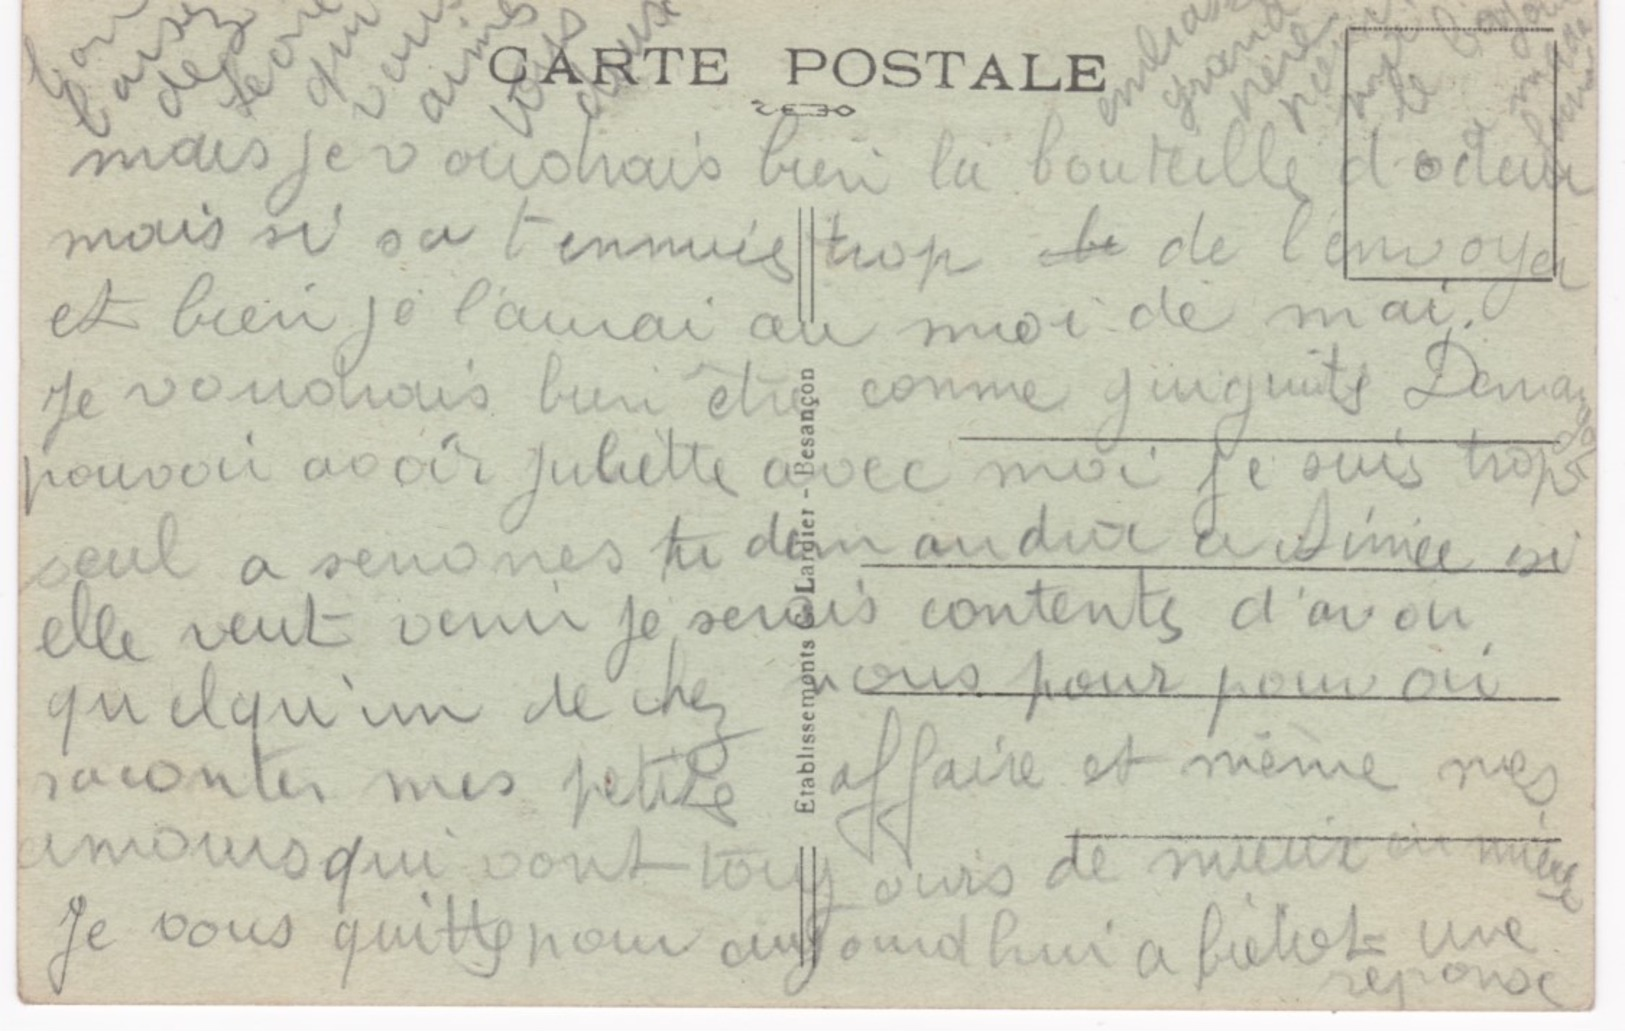 CARTE POSTALE
mais je voudrais bien la bouteille d'odeur
mais si sa t ennuie trop de l'envoyer
et bien je l'aurai au moi de mai.
Je voudrais bien être comme Deman
pouvoir avoir Juliette avec moi je suis trop
seul a senones tu demandera a Aimée si
elle veut venir je serais contente d'avoir
quelqu'un de chez nous pour pouvoir
raconter mes petite affaire et même mes
amours qui vont toujours de mieux en mieux
Je vous quitte pour aujourd hui a bientot une
reponse
Etablissements C. Lardier - Besançon